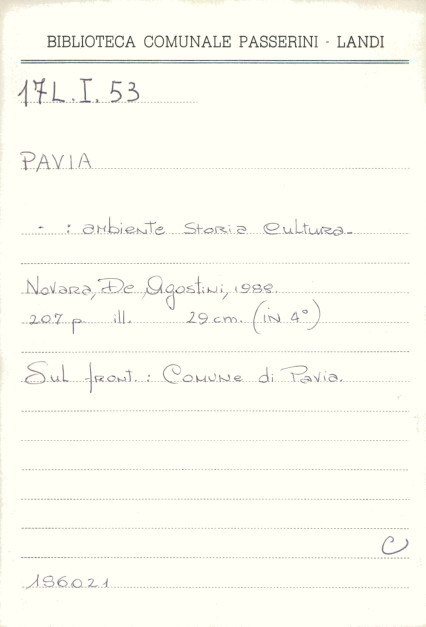 BIBLIOTECA COMUNALE PASSERINI - LANDI
17L.I.53
PAVIA
- : ambiente storia cultura.
Novara, De Agostini, 1988.
207 p ill. 29 cm. (IN 4°)
Sul front.: Comune di Pavia.
C
196021